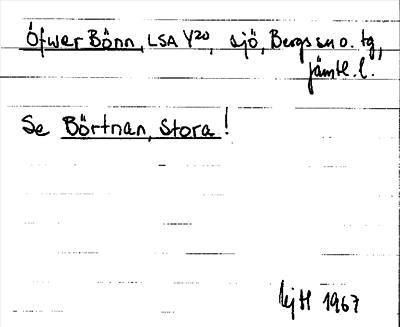 Öfwer Bönn, LSA Y20, sjö, Bergs sn o. tg,
jämtl. l.
Se Börtnan, Stora!
1967